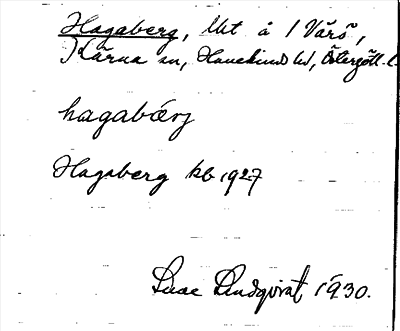 Hagaberg, lht å 1 Vårö,
Kärna sn, Hanekinds hd, Östergötl. l.
hagabærj
Hagaberg kb 1927
Ivar Lindqvist 1930.